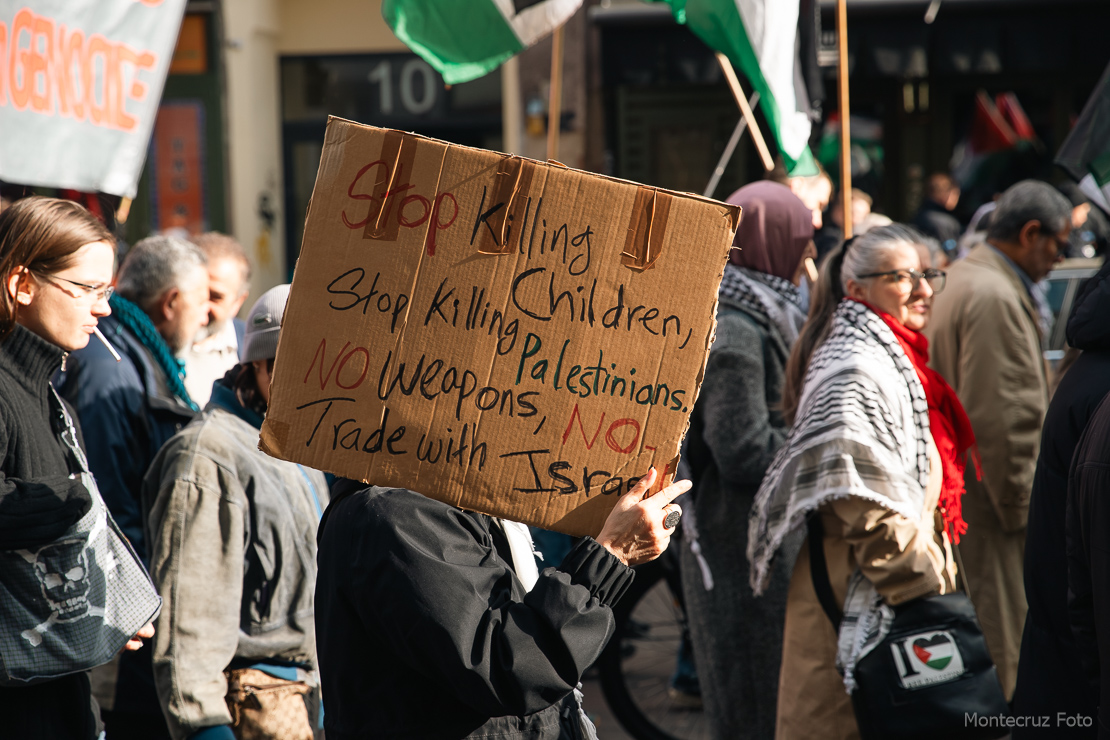 GENOCIDE
10
Stop Killing
Stop Killing Children,
Palestinians.
NO Weapons, NO-
Trade with Israe
I
Montecruz Foto